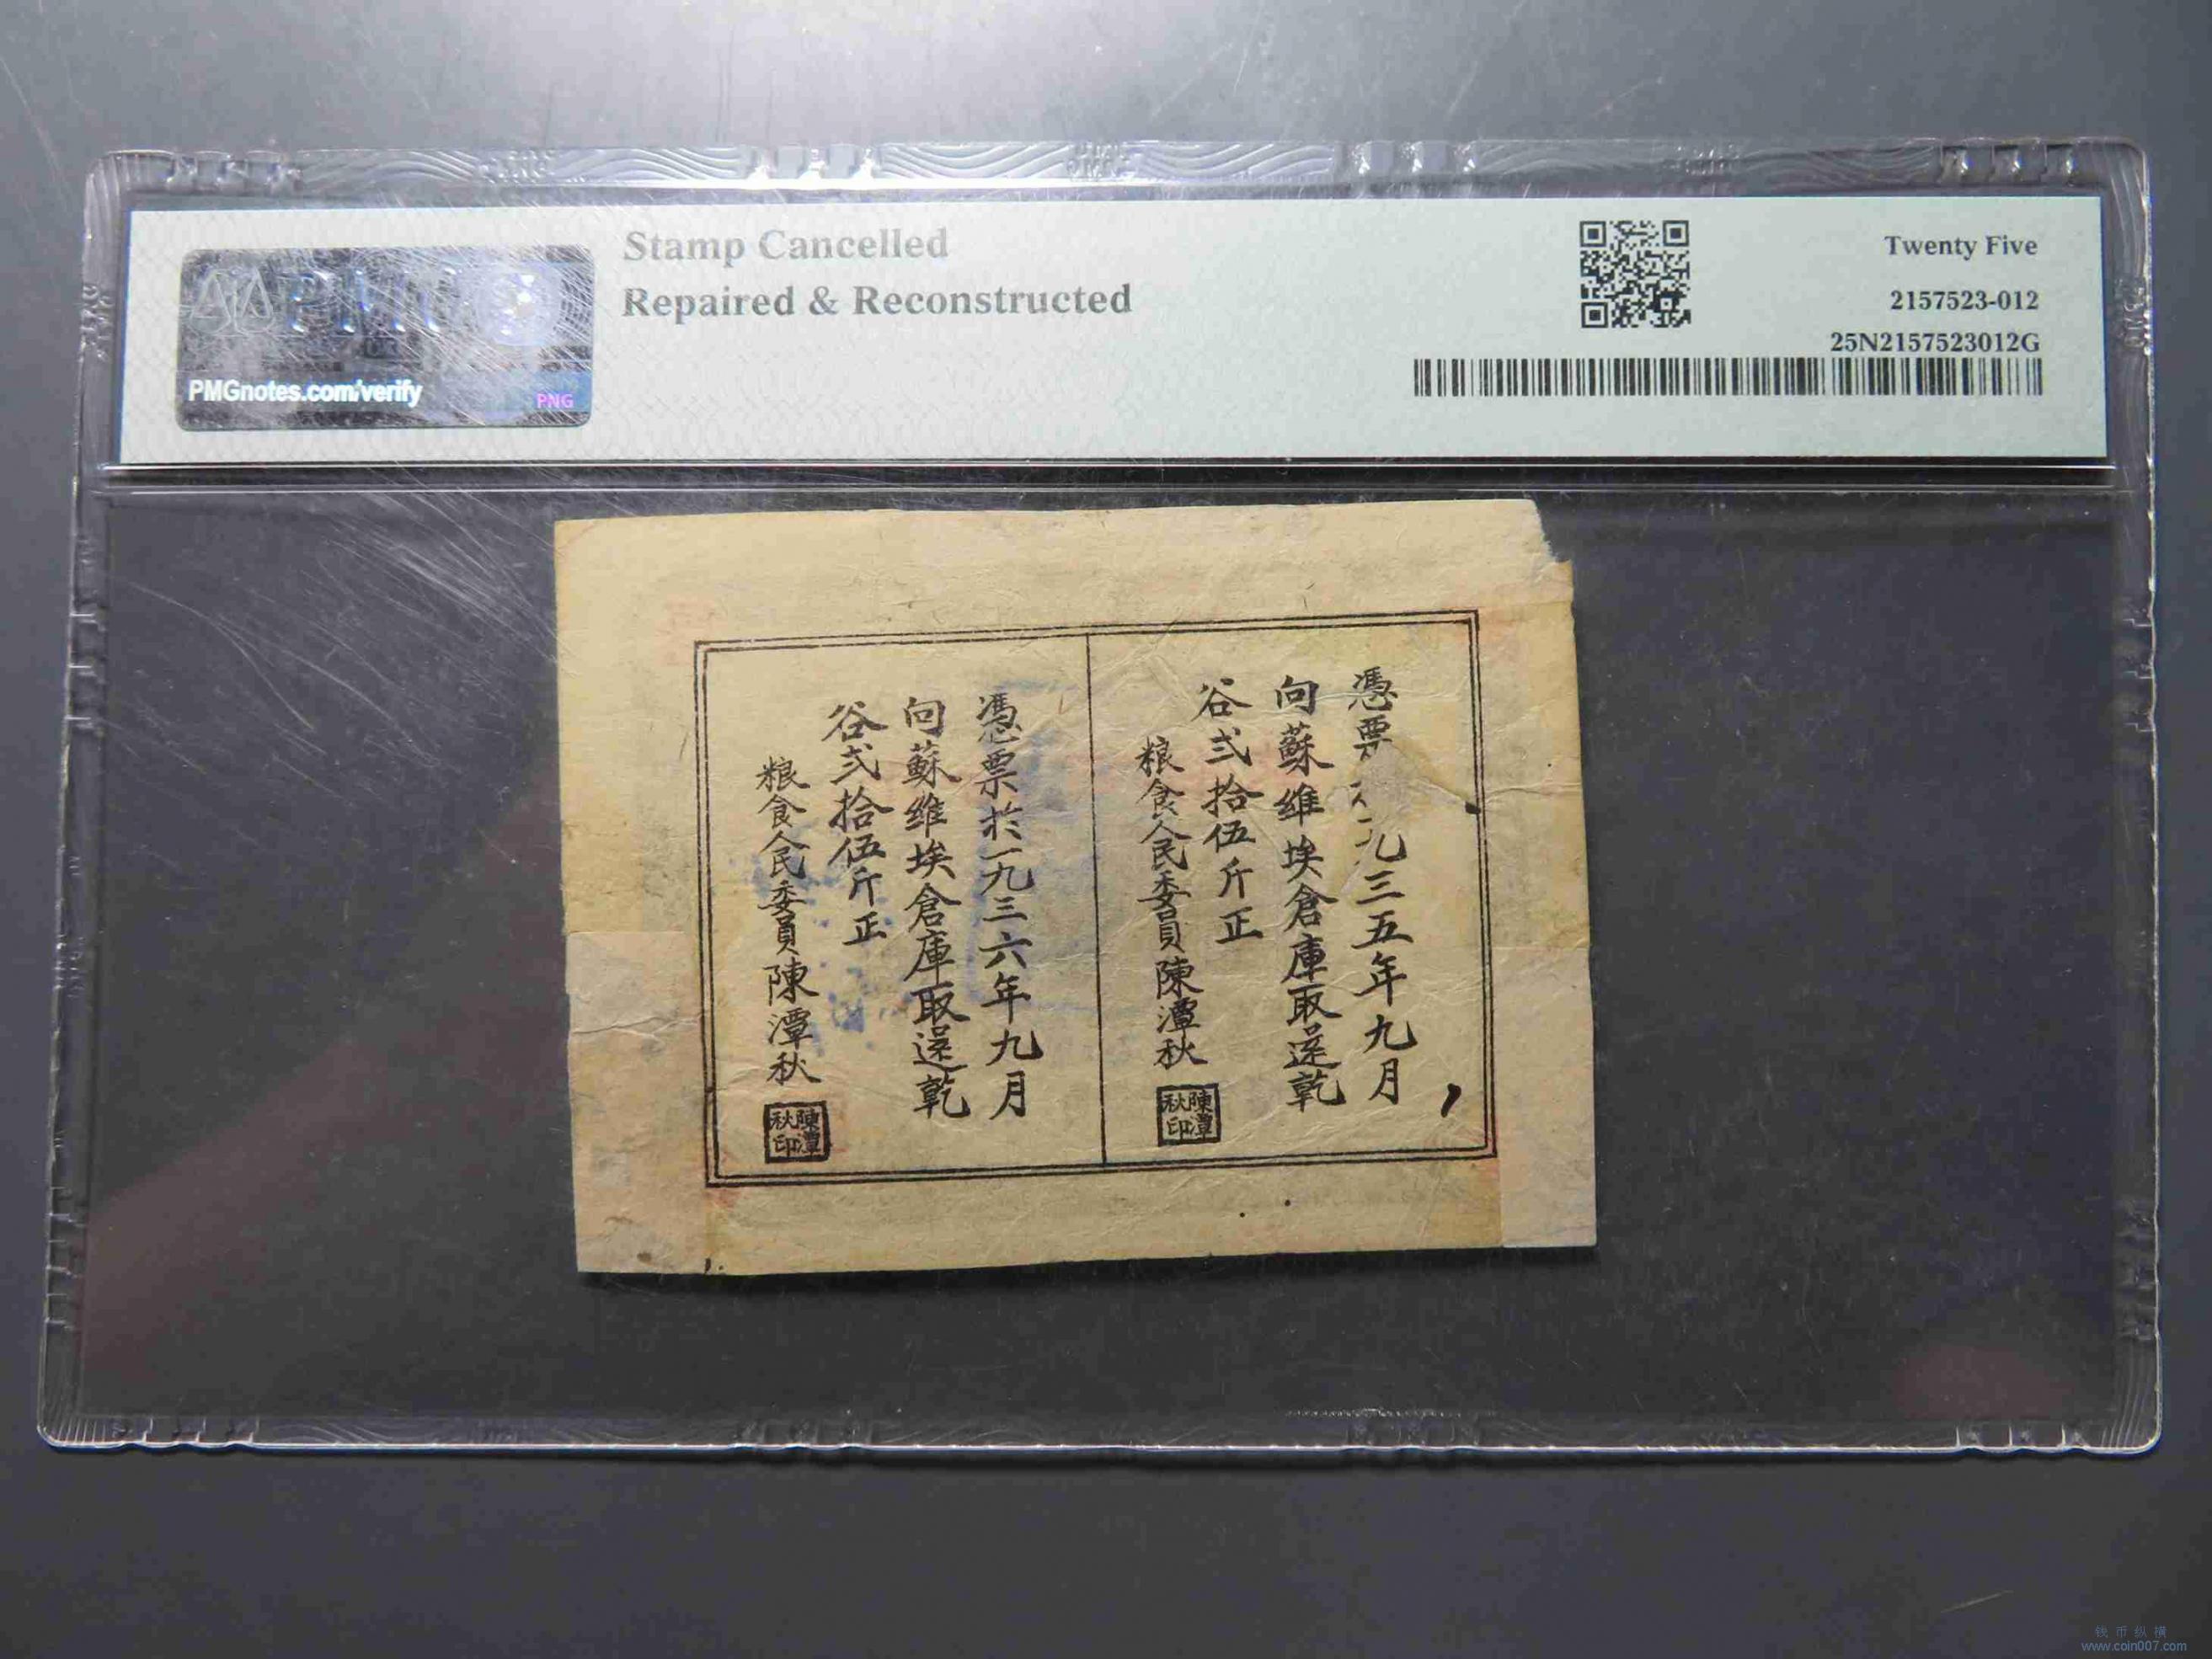 Stamp Cancelled
Repaired & Reconstructed
PMGnotes.com/verify
PNG
Twenty Five
2157523-012
25N2157523012G
憑票
九三五年九月
向蘇维埃倉庫取還乾
谷弍拾伍斤正
粮食人民委員陳潭秋
陳潭秋印
憑票於一九三六年九月
向蘇维埃倉庫取還乾
谷弍拾伍斤正
粮食人民委員陳潭秋
陳潭秋印
钱币纵横
www.coin007.com